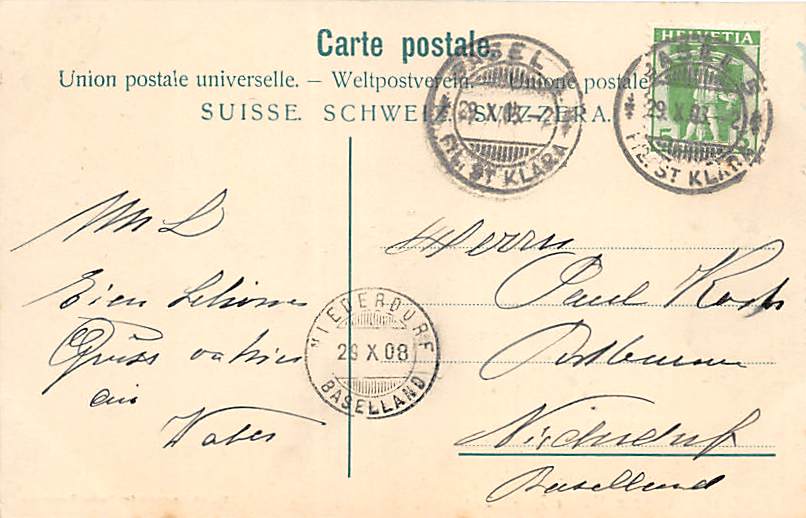 Carte postale.
Union postale universelle. – Weltpostverein. – Unione postale
SUISSE. SCHWEIZ. SVIZZERA.
HELVETIA
5
BASEL 5
29.X.08.–2
FIL. ST KLARA
BASEL 5
29.X.08.–2
FIL. ST KLARA
NIEDERDORF
29 X 08
BASELLAND
Herrn
Paul
Niederdorf
Baselland
M L
Eien Schönen
Gruss